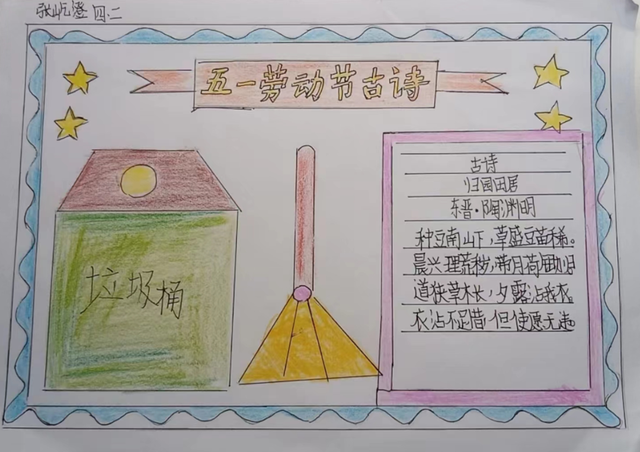 张屹澄 四.二
五一劳动节古诗
垃圾桶
古诗
归园田居
东晋·陶渊明
种豆南山下，草盛豆苗稀。
晨兴理荒秽，带月荷锄归
道狭草木长，夕露沾我衣
衣沾不足惜，但使愿无违。